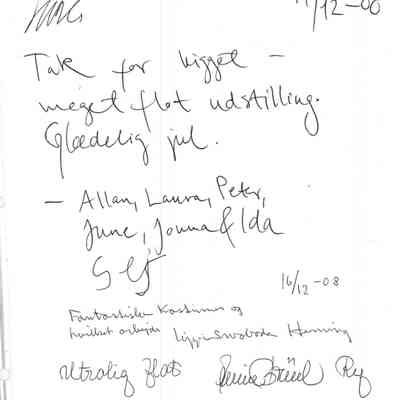 /12-08
Tak for kigget -
meget flot udstilling.
Glædelig jul.
- Allan, Laura, Peter,
June, Jonna & Ida
16/12-08
Fantastiske Kostumer og
hvilket arbejde Henning
Utrolig flot